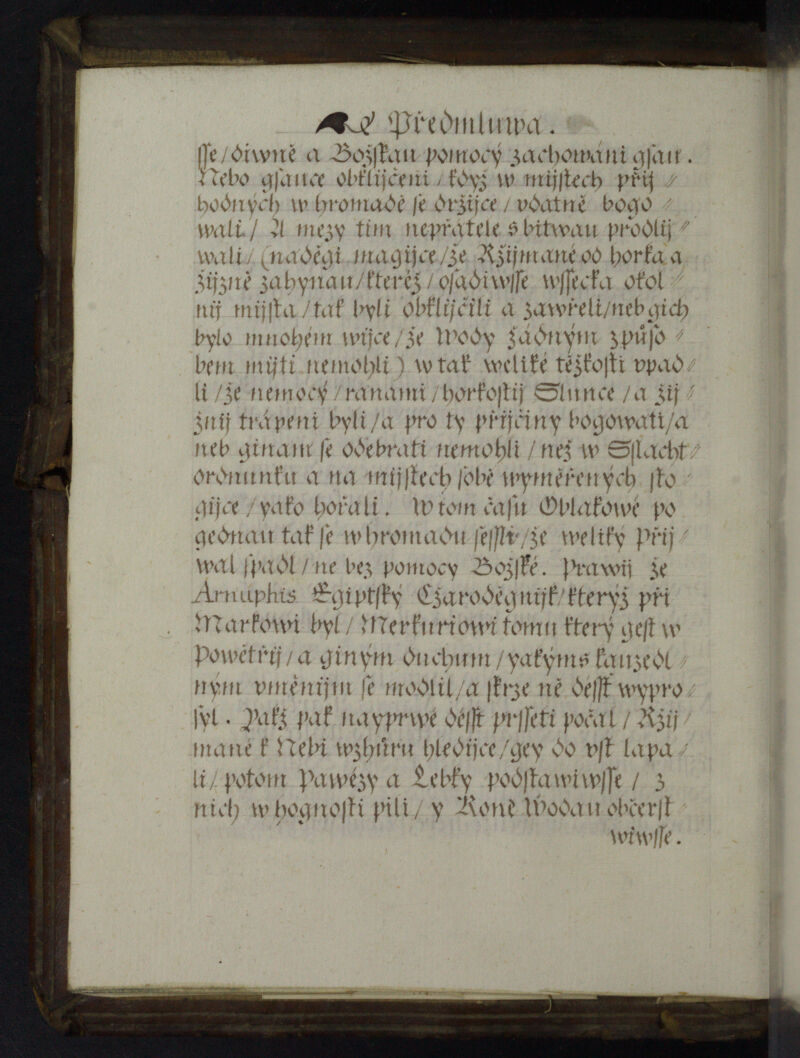 Předmluwa.
sse/diwně a Božskau pomocý zachowáni gsau.
Nebo gsauce obklijčeni / když w mijstech přij⸗
hodných w hromadě se držijce / vdatně bogo⸗
wali / A mezy tim nepřátelé s bitwau prodlij⸗
wali / (naděgi magijce / že Ržijmané od horka a
žijzně zahynau / kteréž / osadiwsse wssecka okol⸗
nij mijsta / tak byli obklijčili a zawřeli / neb gich
bylo mnohem wijce / že Wody žádným způso⸗
bem mijti nemohli) w tak weliké těžkosti vpad⸗
li / že nemocý / ranami / horkostij Slunce / a žij⸗
znij trápeni byli / a pro ty přijčiny bogowati / a
neb ginam se odebrati nemohli / než w Sslacht⸗
ordnunku a na mijstech sobě wyměřených sto⸗
gijce / yako hořali. W tom času Oblakowé po
gednau tak se w hromadu sessli / že weliky Přij⸗
wal spadl / ne bez pomocy Božské. Prawij že
Arnuphis Egiptsky Czaroděgnijk / kterýž při
Markowi byl / Merkuriowi tomu ktery gest w
Powětřij / a giným duchum / yakýms kauzedl⸗
ným vměnijm se modlil / a skrze ně déssť wypro⸗
syl. Pakž pak nayprwé déssť prsseti počal / Ržij⸗
mané k Nebi wzhůru hledijce / gey do vst lapa⸗
li / potom Pawézy a Lebky podstawiwsse / z
nich w hognosti pili / y Koně Wodau občerst⸗
wiwsse.